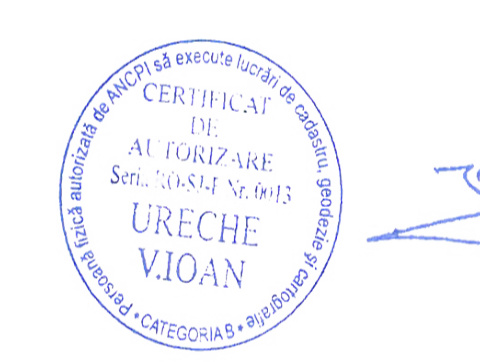 Persoană fizică autorizată de ANCPI să execute lucrări de cadastru, geodezie și cartografie
CERTIFICAT
DE
AUTORIZARE
Seria RO-SJ-F Nr. 0013
URECHE
V.IOAN
* CATEGORIA B *